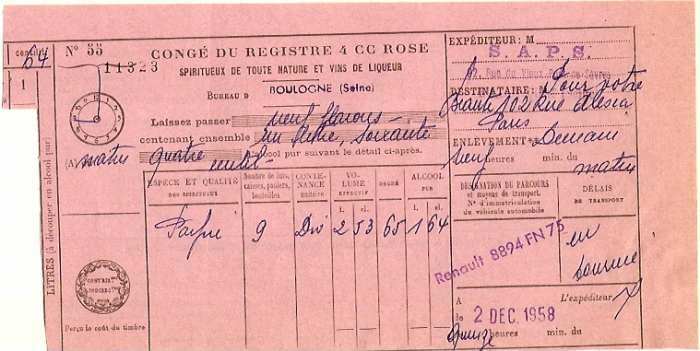 centilit
64
1
LITRES (à découper en alcool pur)
N° 55
11323
CONGÉ DU REGISTRE 4 CC ROSE
SPIRITUEUX DE TOUTE NATURE ET VINS DE LIQUEUR
BUREAU D BOULOGNE (Seine)
Laissez passer neuf flacons
contenant ensemble un litre, soixante
(A) matin quatre centil
alcool pur suivant le détail ci-après.
ESPÈCE ET QUALITÉ DES SPIRITUEUX
Nombre de fûts, caisses, paniers, bouteilles
CONTENANCE UNITAIRE
VOLUME EFFECTIF
DEGRÉ
ALCOOL PUR
l. cl. l. cl.
9 Div 2 53 65 1 64
CONTRIBUT INDIRECTES
Perçu le coût du timbre
EXPÉDITEUR: M
S.A.P.S.
DESTINATAIRE: M Pour votre
Beauté 102 Rue Alesia
Paris
ENLÈVEMENT: Demain
neuf heures min. du matin
DÉSIGNATION DU PARCOURS
et moyens de transport.
N° d'immatriculation
du véhicule automobile
DÉLAIS
DE TRANSPORT
Renault 8894 FN 75
A L'expéditeur
le 2 DEC. 1958
Quinze heures min. du